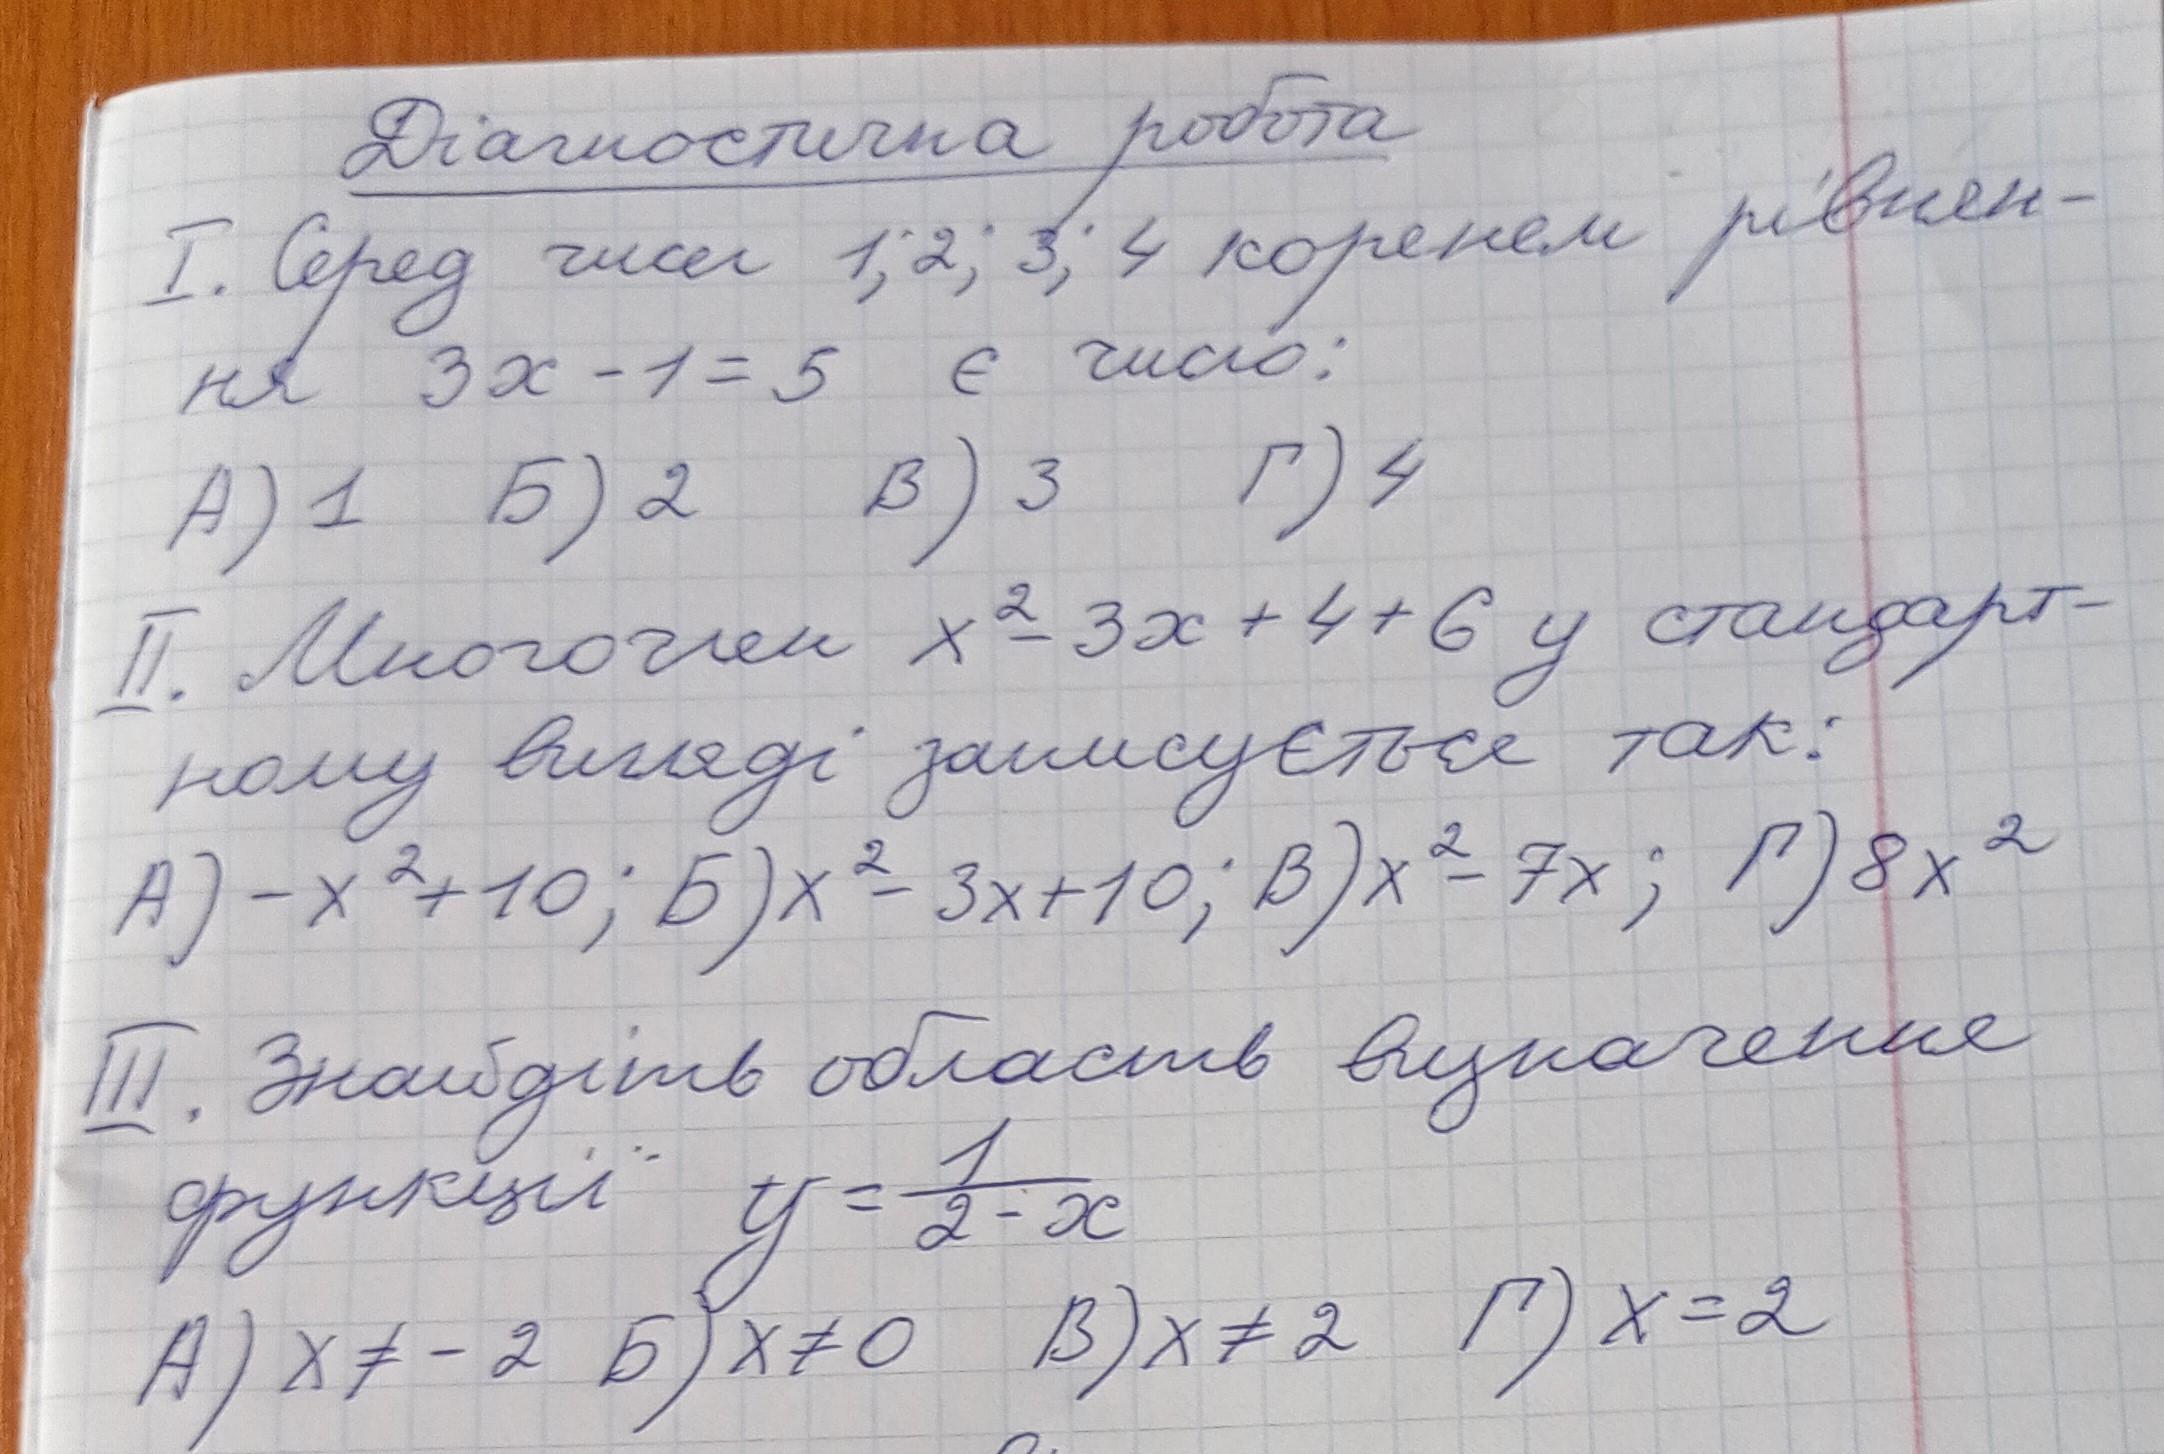 Діагностична робота
I. Серед чисел 1; 2; 3; 4 коренем рівнян-
ня 3x - 1 = 5 є число:
А) 1 Б) 2 В) 3 Г) 4
II. Многочлен x² - 3x + 4 + 6 у стандарт-
ному вигляді записується так:
А) -x² + 10; Б) x² - 3x + 10; В) x² - 7x; Г) 8x²
III. Знайдіть область визначення
функції y = 1/(2 - x)
А) x ≠ -2 Б) x ≠ 0 В) x ≠ 2 Г) x = 2